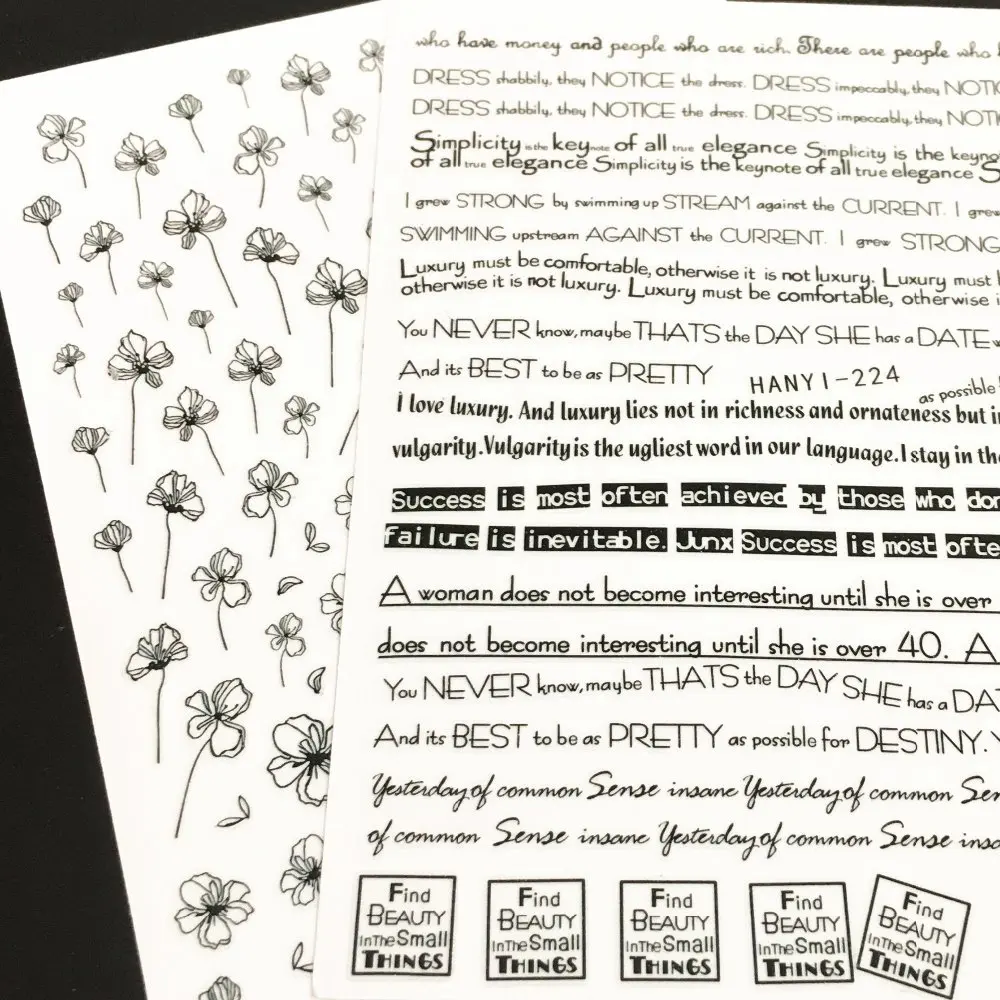 who have money and people who are rich. There are people who
DRESS shabbily, they NOTICE the dress. DRESS impeccably, they
DRESS shabbily, they NOTICE the dress. DRESS impeccably, they
Simplicity is the keynote of all true elegance Simplicity is the
of all true elegance Simplicity is the keynote of all true elegance
I grew STRONG by swimming up STREAM against the CURRENT. I grew
SWIMMING upstream AGAINST the CURRENT. I grew STRONG
Luxury must be comfortable, otherwise it is not luxury. Luxury must
otherwise it is not luxury. Luxury must be comfortable, otherwise
You NEVER know, maybe THATS the DAY SHE has a DATE
And its BEST to be as PRETTY
HANYI-224
as possible
I love luxury. And luxury lies not in richness and ornateness but
vulgarity. Vulgarity is the ugliest word in our language. I stay in
Success is most often achieved by those who
failure is inevitable. Junx Success is most
A woman does not become interesting until she is over
does not become interesting until she is over 40. A
You NEVER know, maybe THATS the DAY SHE has a
And its BEST to be as PRETTY as possible for DESTINY.
Yesterday of common Sense insane Yesterday of common
of common Sense insane Yesterday of common Sense
Find
BEAUTY
InTheSmall
THINGS
Find
BEAUTY
InTheSmall
THINGS
Find
BEAUTY
InTheSmall
THINGS
Find
BEAUTY
InTheSmall
THINGS
Find
BEAUTY
InTheSmall
THINGS